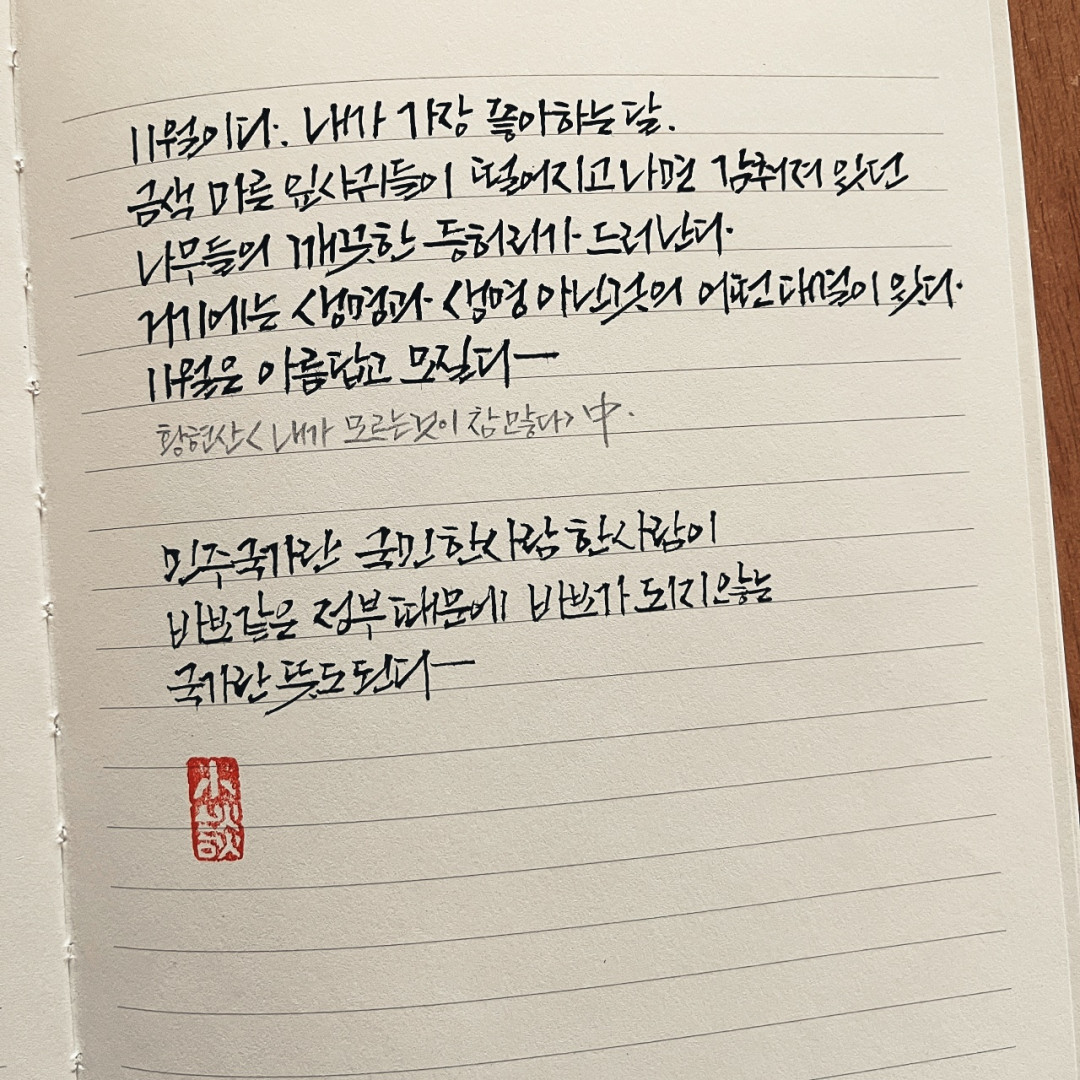 11월이다. 내가 가장 좋아하는 달.
금색 마른 잎사귀들이 떨어지고나면 감춰져 있던
나무들의 깨끗한 등허리가 드러난다.
거기에는 생명과 생명 아닌것의 어떤 대결이 있다.
11월은 아름답고 모질다—
황현산<내가 모르는것이 참 많다>中.
민주국가란 국민 한사람 한사람이
바보같은 정부 때문에 바보가 되지않는
국가란 뜻도 된다—
小